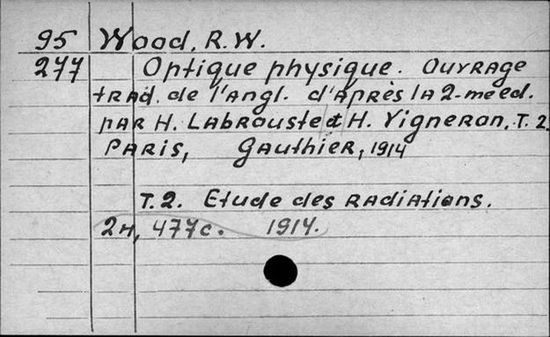 95 Wood, R.W.
277 Optique physique. Ouvrage
trad. de l'angl. d'après la 2-me éd.
par H. Labrouste et H. Vigneron. T. 2
Paris, Gauthier, 1914
T. 2. Etude des radiations.
2н, 477с. 1914.